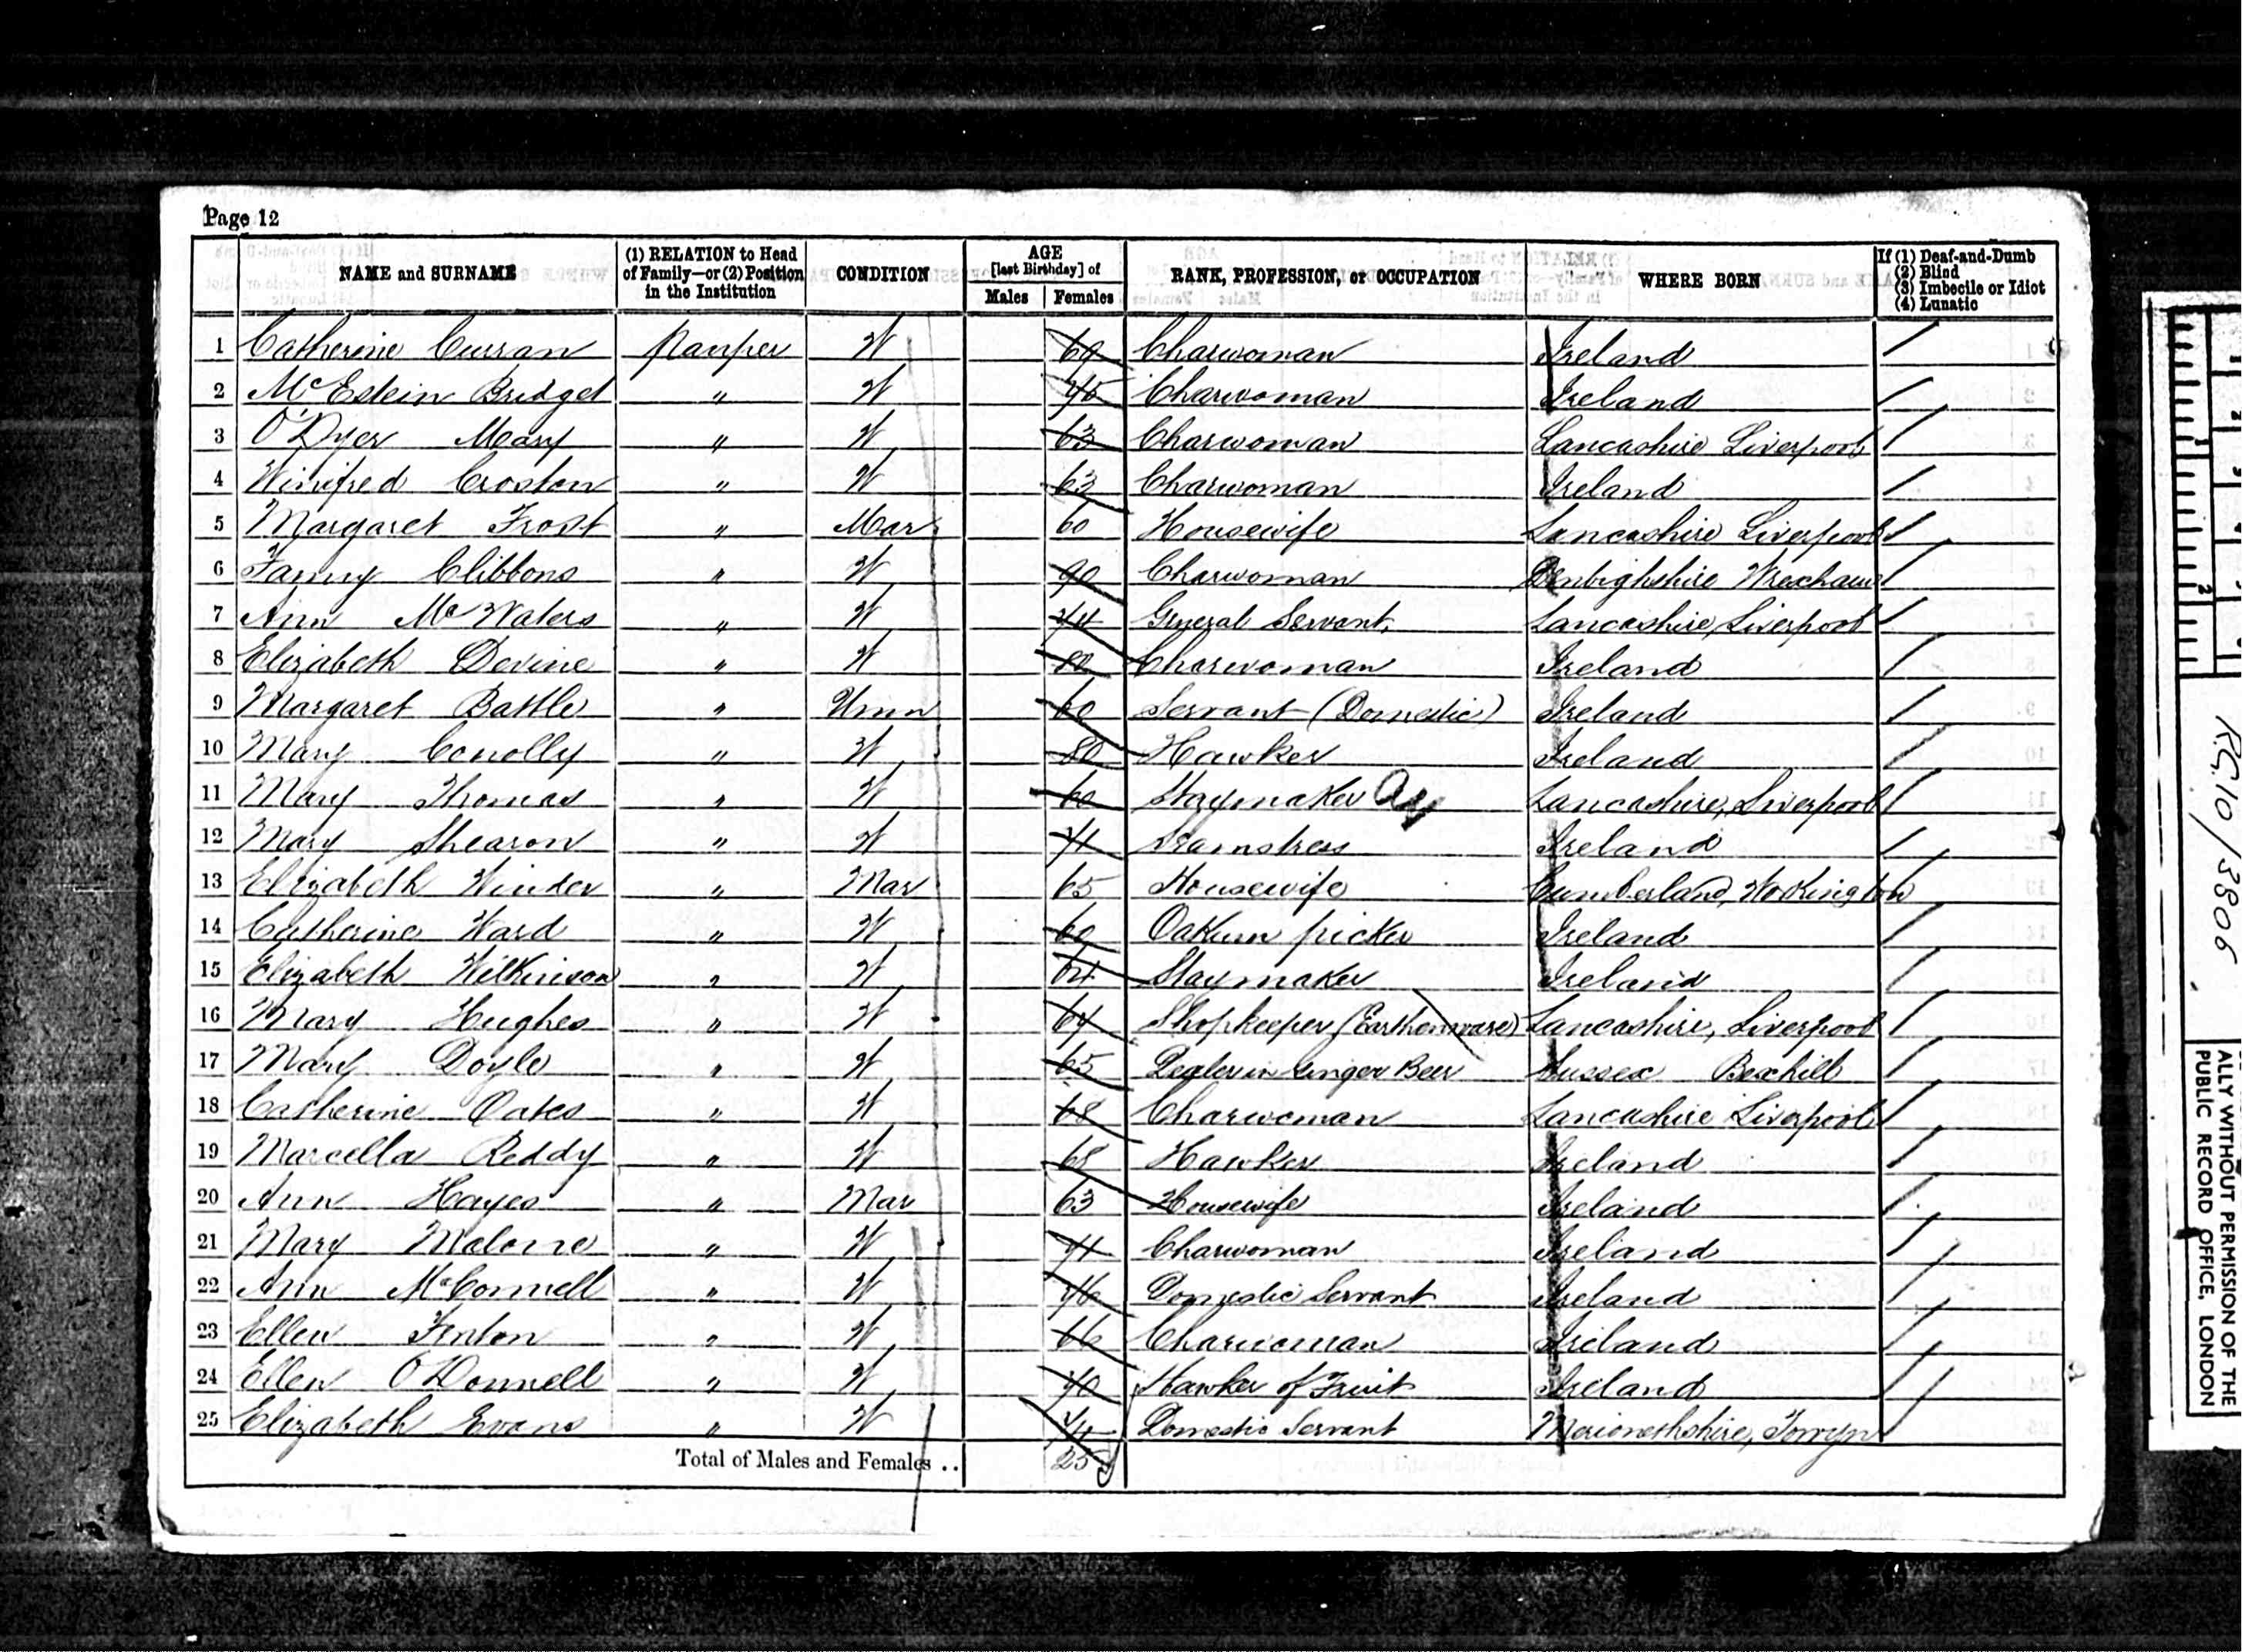 Page 12
NAME and SURNAME | (1) RELATION to Head of Family—or (2) Position in the Institution | CONDITION | AGE [last Birthday] of Males | Females | RANK, PROFESSION, or OCCUPATION | WHERE BORN | If (1) Deaf-and-Dumb (2) Blind (3) Imbecile or Idiot (4) Lunatic
1 Catherine Curran pauper W 69 Charwoman Ireland
2 Bridget " W Charwoman Ireland
3 O'Dyer Mary " W 63 Charwoman Lancashire Liverpool
4 Winifred Croston " W 63 Charwoman Ireland
5 Margaret Frost " Mar 60 Housewife Lancashire Liverpool
6 Fanny Clibbons " W 90 Charwoman Denbighshire Wrexham
7 Ann Mc Waters " W 74 General Servant Lancashire, Liverpool
8 Elizabeth Devine " W 80 Charwoman Ireland
9 Margaret Battle " Unm 60 Servant (Domestic) Ireland
10 Mary Conolly " W 80 Hawker Ireland
11 Mary Thomas " W 60 Staymaker Lancashire, Liverpool
12 Mary Shearon " W 71 Seamstress Ireland
13 Elizabeth Winder " Mar 65 Housewife Cumberland, Workington
14 Catherine Ward " W 60 Oakum picker Ireland
15 Elizabeth Wilkinson " W 64 Staymaker Ireland
16 Mary Hughes " W 64 Shopkeeper (Earthenware) Lancashire, Liverpool
17 Mary Doyle " W 65 Dealer in Ginger Beer Sussex Bexhill
18 Catherine Oates " W 68 Charwoman Lancashire Liverpool
19 Marcella Reddy " W 68 Hawker Ireland
20 Ann Hayes " Mar 63 Housewife Ireland
21 Mary Malone " W 71 Charwoman Ireland
22 Ann McConnell " W 76 Domestic Servant Ireland
23 Ellen Fenton " W 66 Charwoman Ireland
24 Ellen O'Donnell " W 70 Hawker of Fruit Ireland
25 Elizabeth Evans " W 74 Domestic Servant Merionethshire, Towyn
Total of Males and Females .. 25
R.G. 10/3806
ALLY WITHOUT PERMISSION OF THE
PUBLIC RECORD OFFICE, LONDON